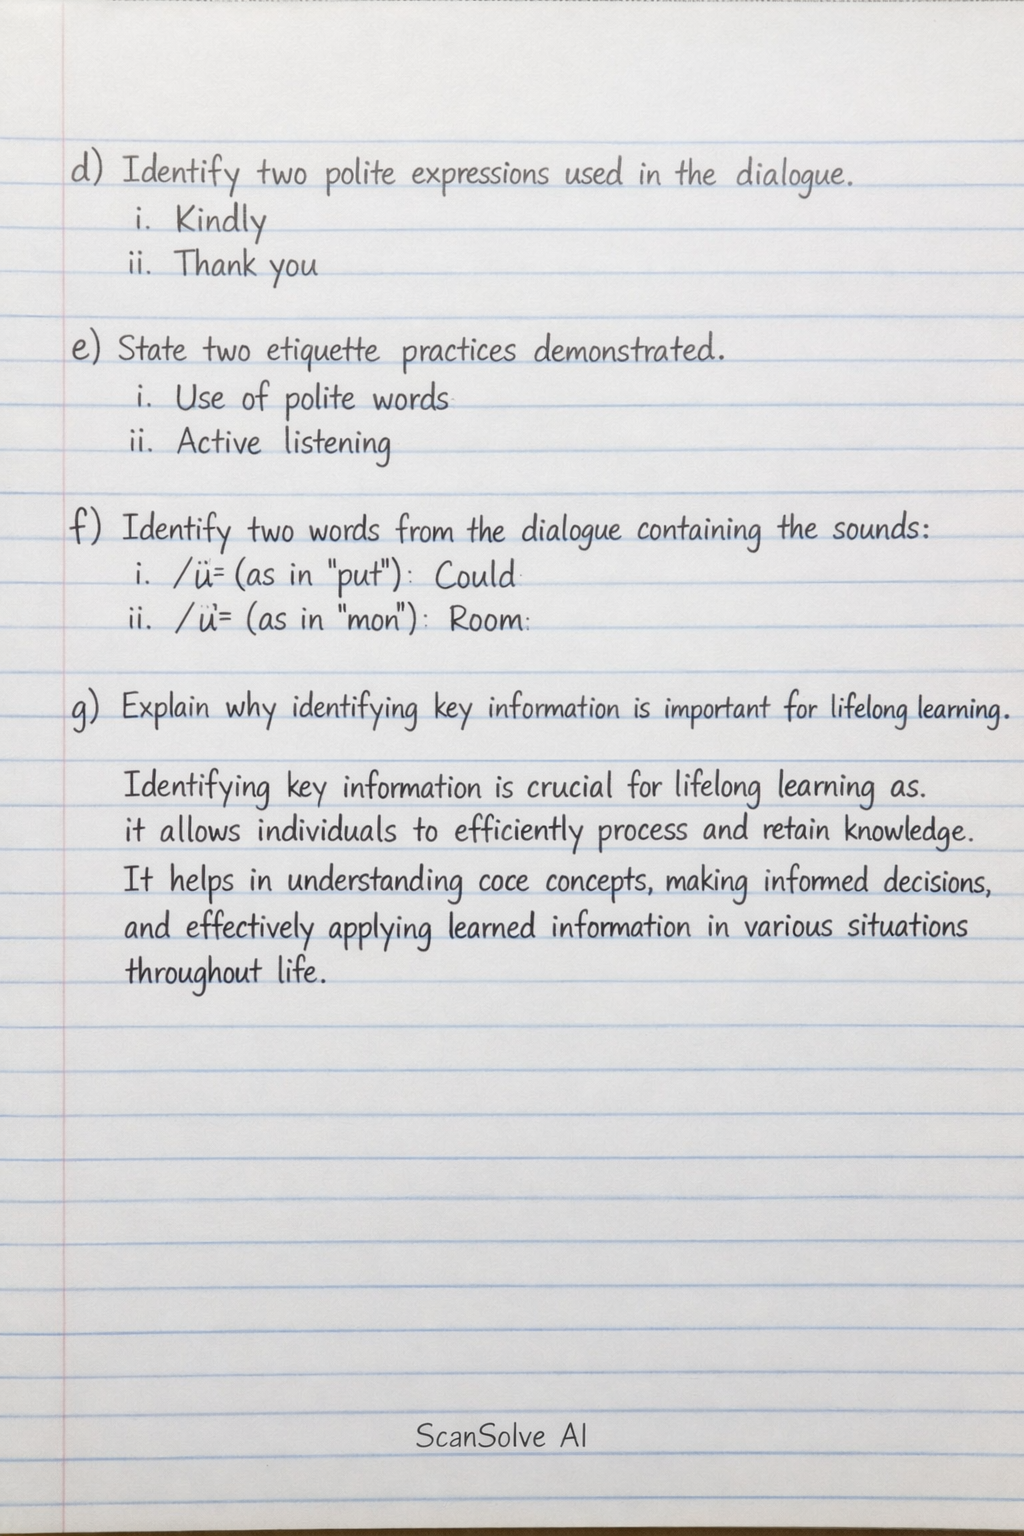 d) Identify two polite expressions used in the dialogue.
i. Kindly
ii. Thank you
e) State two etiquette practices demonstrated.
i. Use of polite words
ii. Active listening
f) Identify two words from the dialogue containing the sounds:
i. /ü= (as in "put"): Could
ii. /ü= (as in "mon"): Room:
g) Explain why identifying key information is important for lifelong learning.
Identifying key information is crucial for lifelong learning as.
it allows individuals to efficiently process and retain knowledge.
It helps in understanding coce concepts, making informed decisions,
and effectively applying learned information in various situations
throughout life.
ScanSolve AI